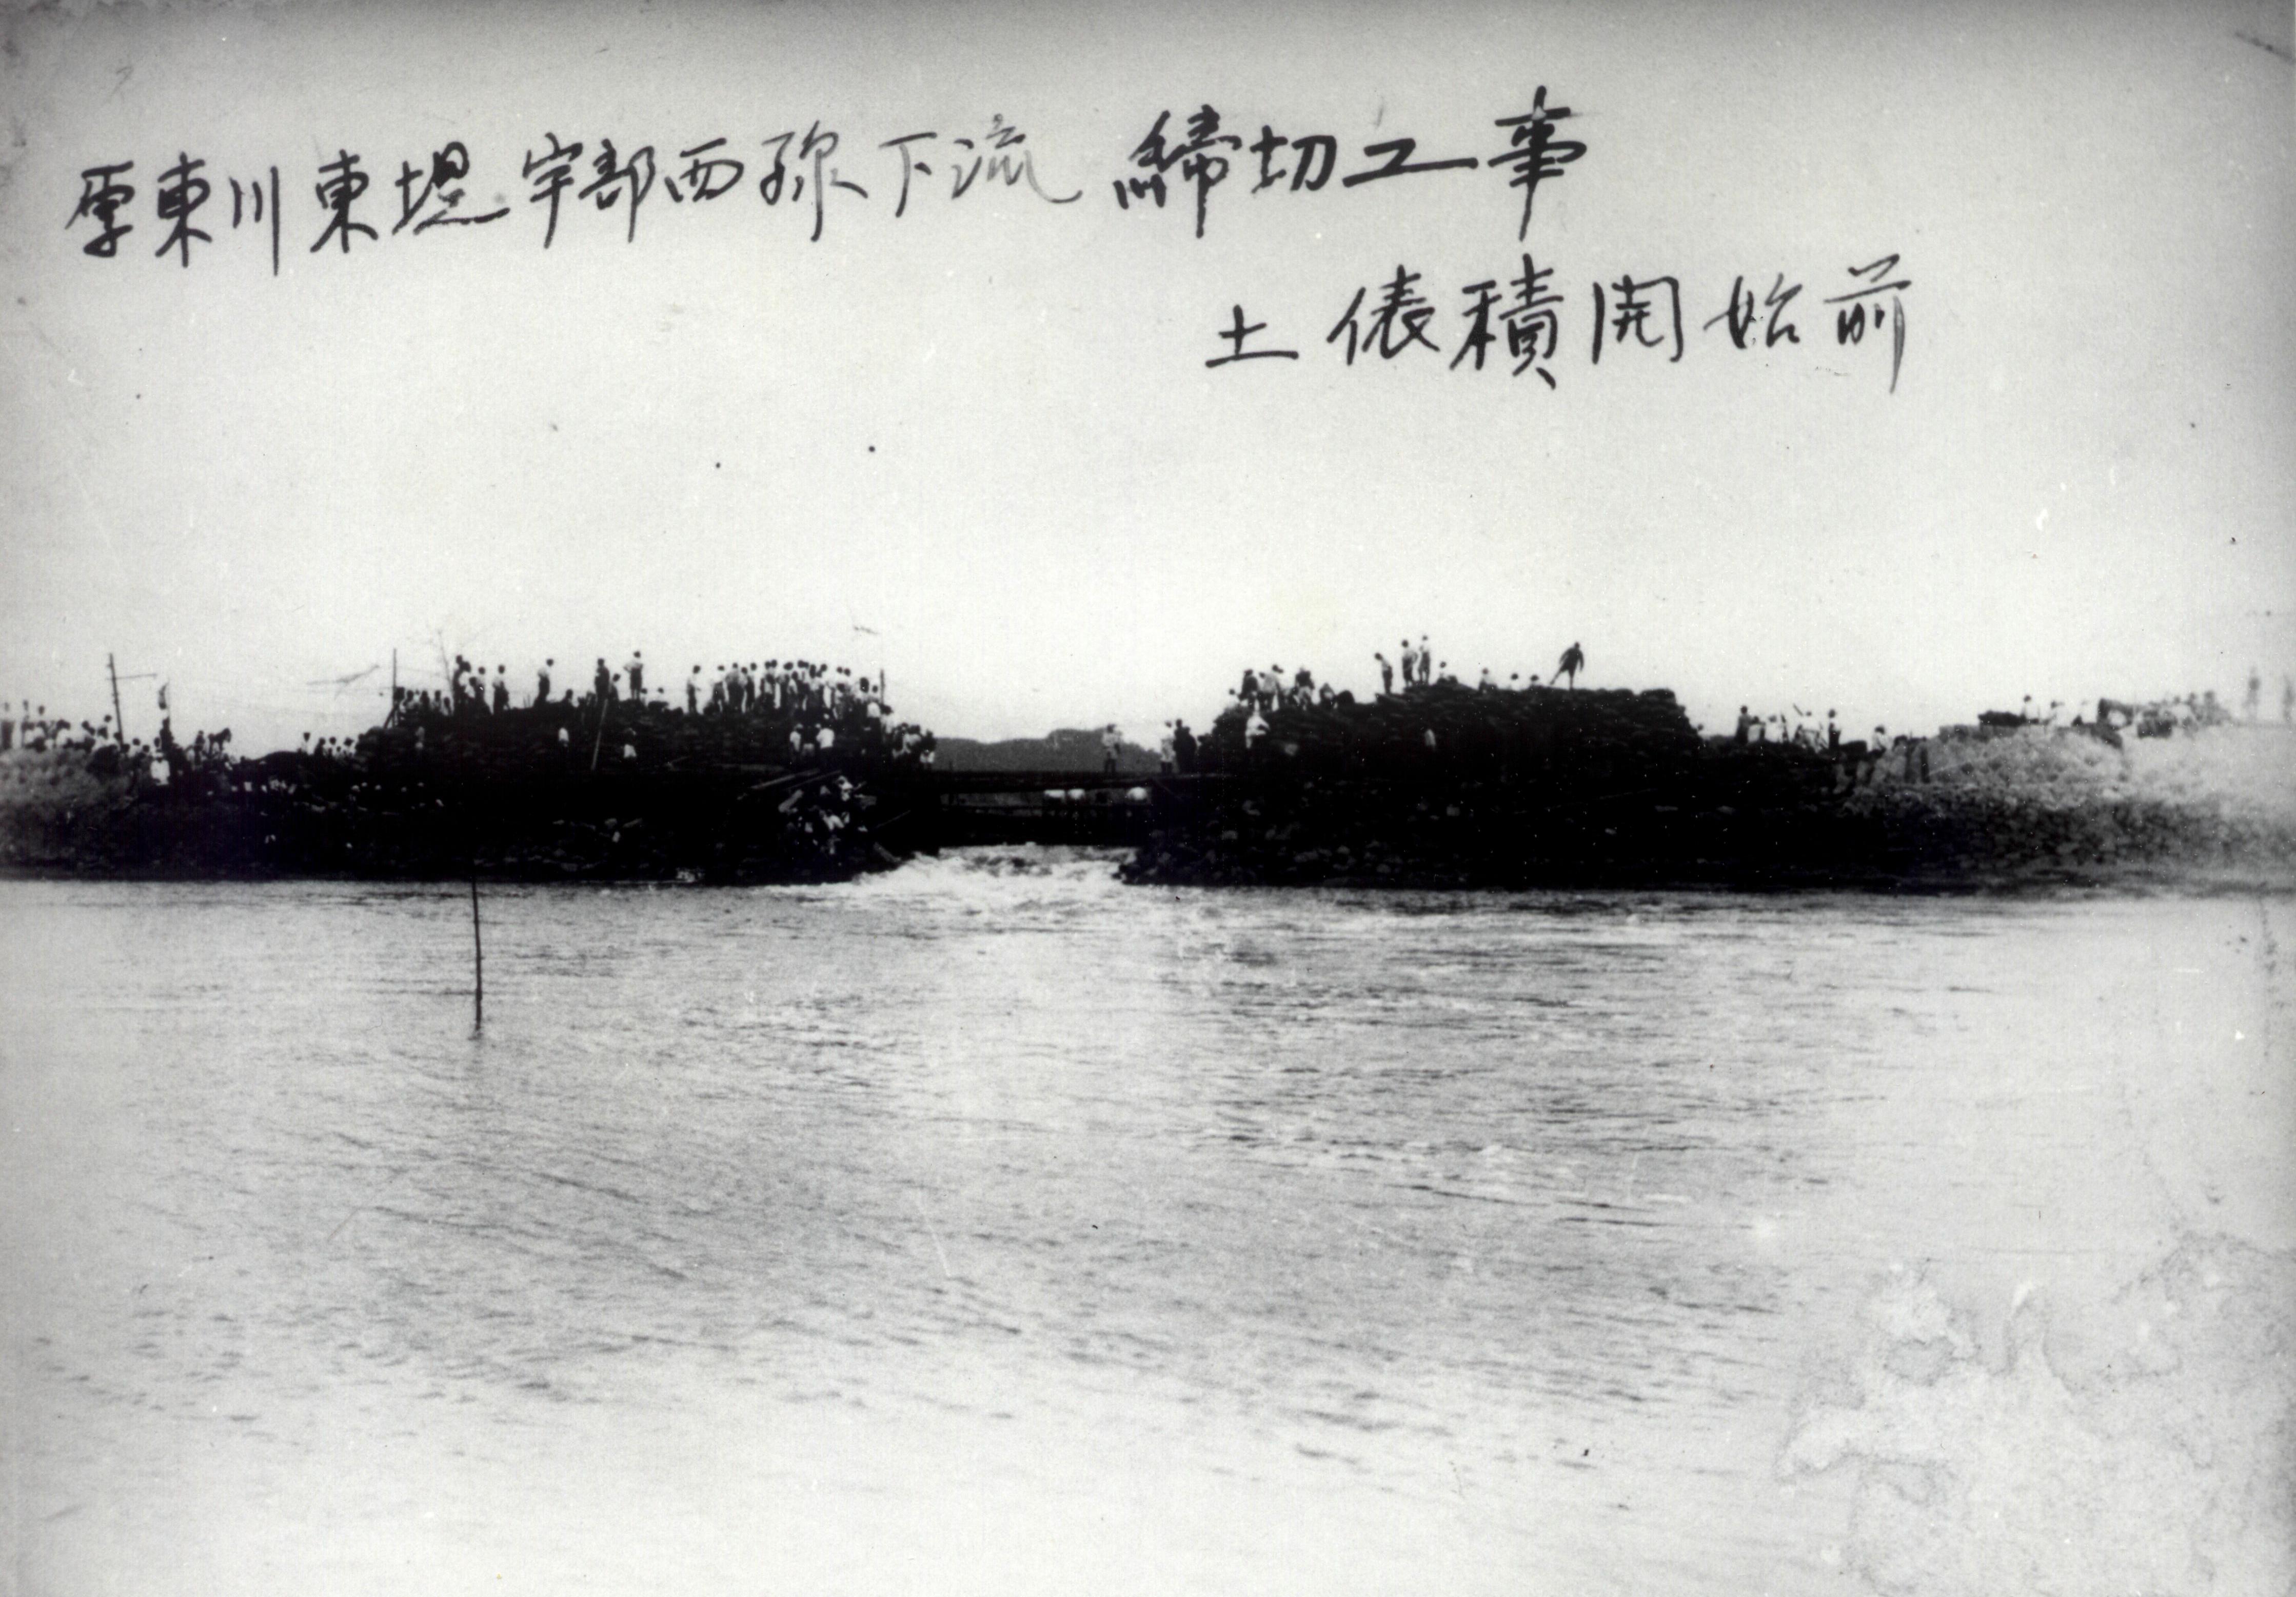 厚東川東堤宇部西線下流 締切工事
土俵積開始前